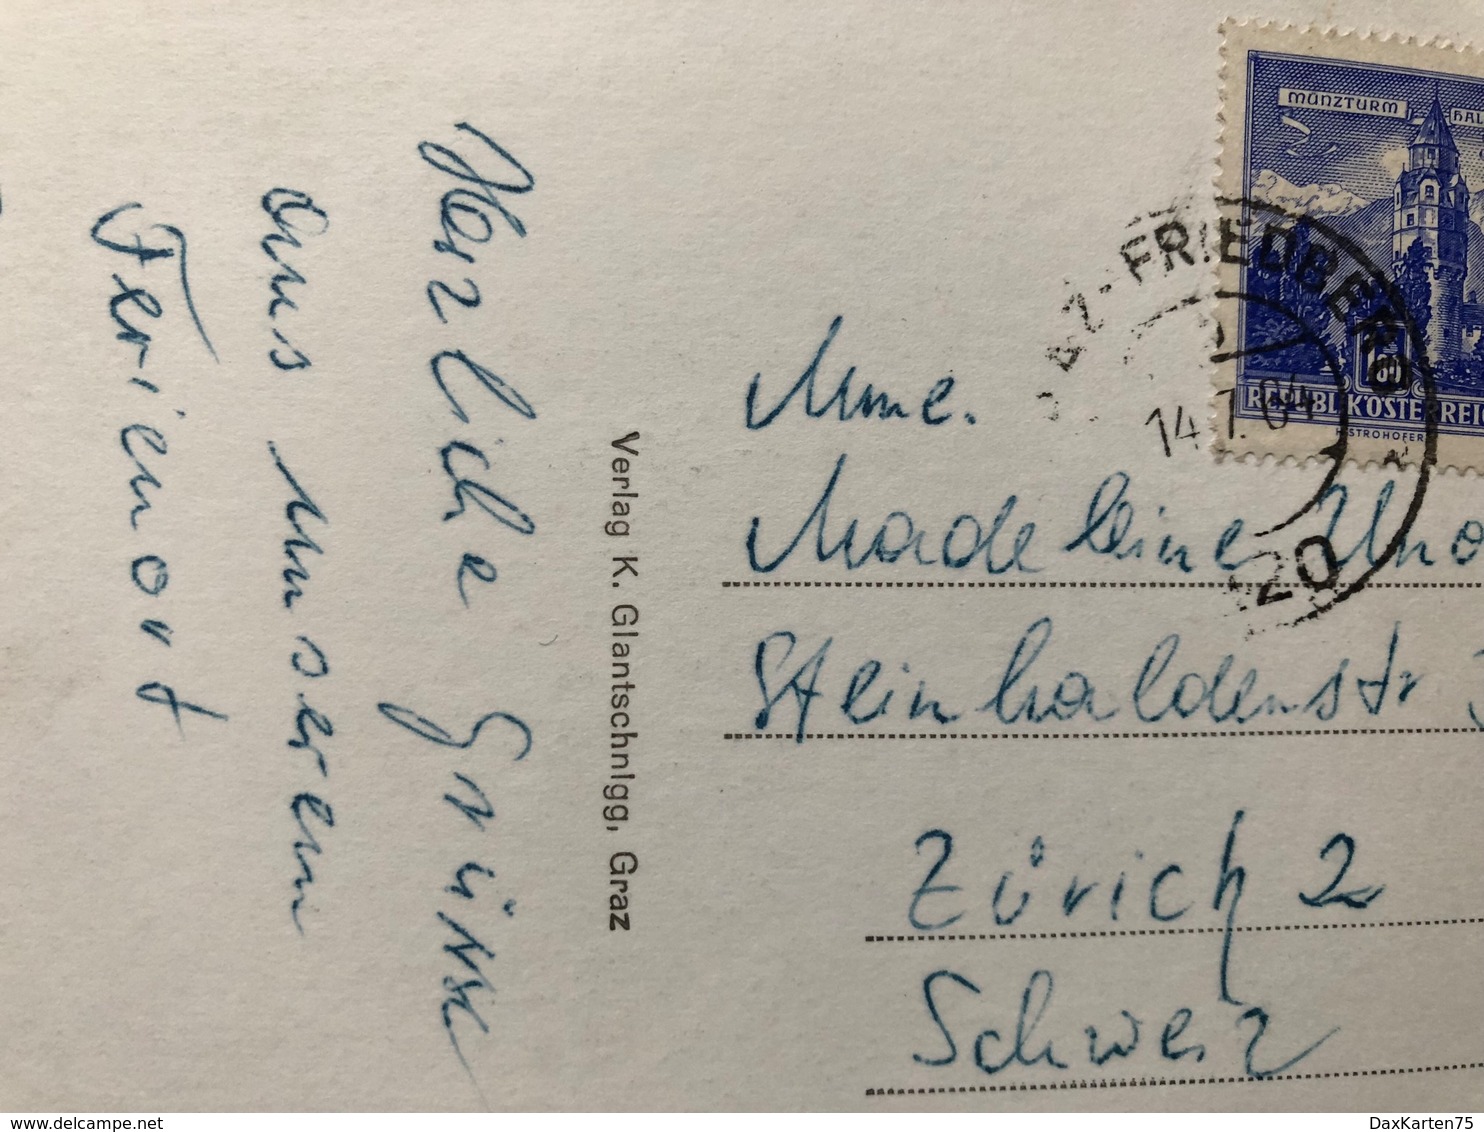 Herzliche Grüsse
aus unserem
Ferienort
Verlag K. Glantschnigg, Graz
MÜNZTURM
REPUBLIK ÖSTERREICH
H. STROHOFER
FRIEDBERG
14.7.64
20
Mme.
Madeleine
Steinhaldenstr
Zürich 2
Schweiz
DaxKarten75